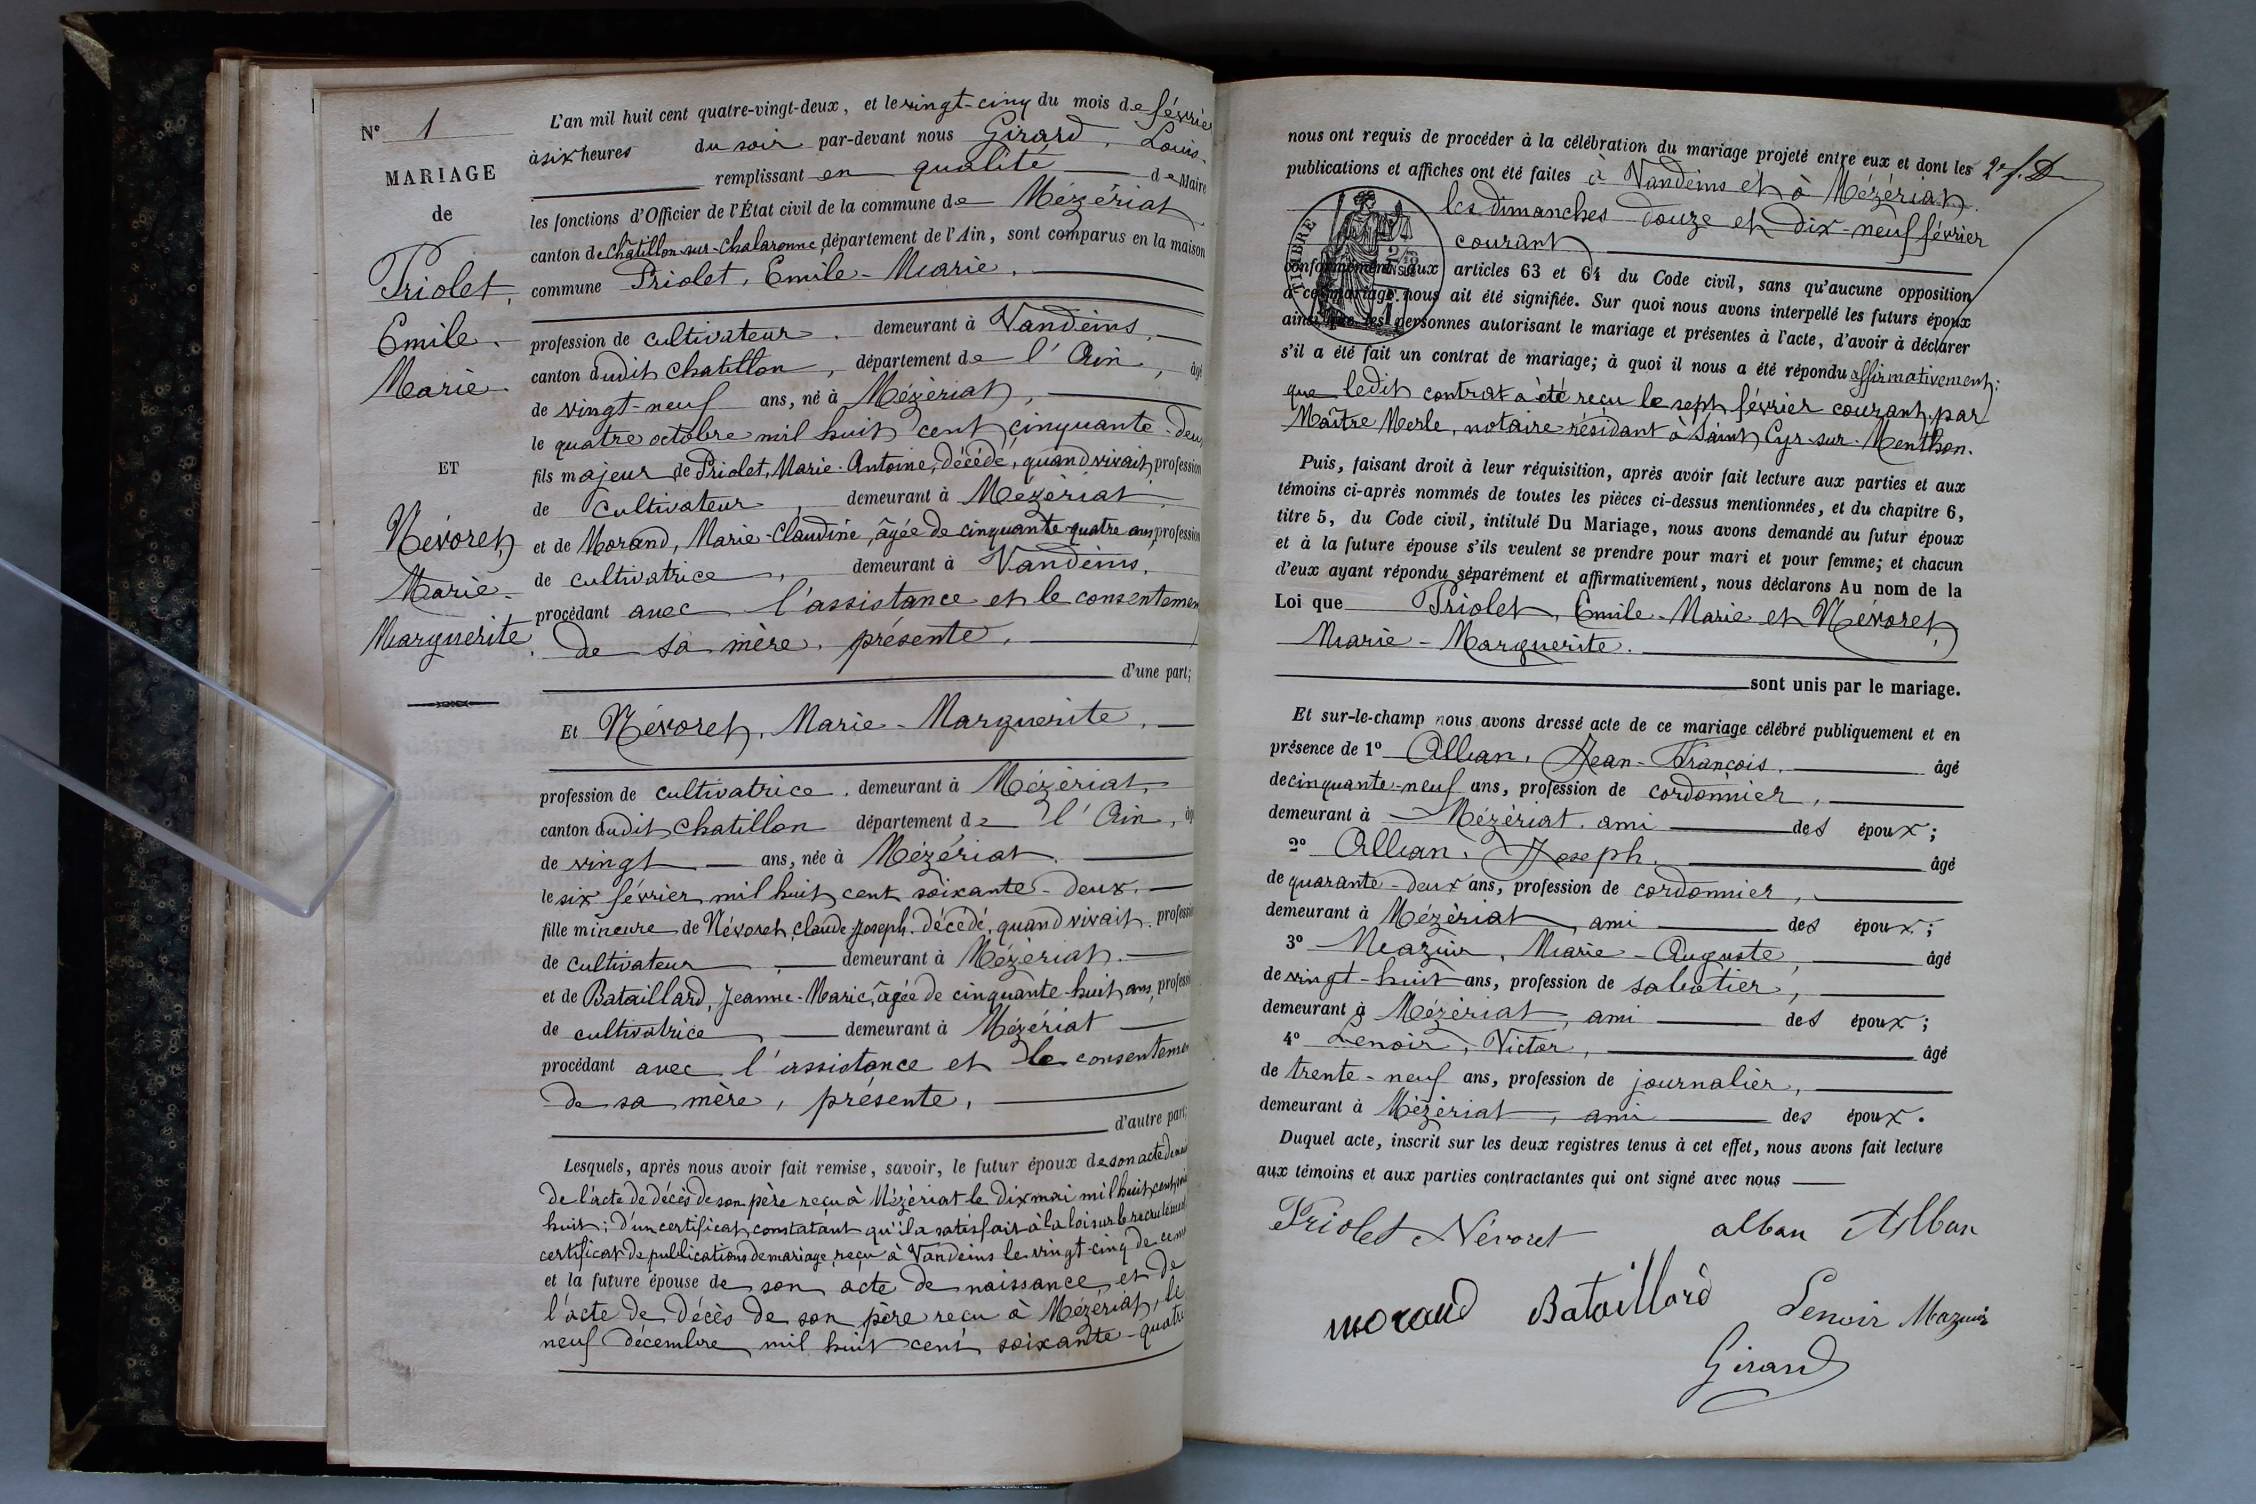 N° 1
MARIAGE
de
Priolet,
Emile
Marie
ET
Névoret,
Marie
Marguerite.
L'an mil huit cent quatre-vingt-deux, et le vingt-cinq du mois de février
à six heures du soir par-devant nous Girard, Louis.
remplissant en qualité de Maire
les fonctions d'Officier de l'État civil de la commune de Mézériat
canton de Châtillon-sur-Chalaronne, département de l'Ain, sont comparus en la maison
commune Priolet, Emile-Marie.
profession de cultivateur. demeurant à Vandeins.
canton dudit Chatillon, département de l'Ain, âgé
de vingt-neuf ans, né à Mézériat,
le quatre octobre mil huit cent cinquante-deux
fils majeur de Priolet, Marie-Antoine, décédé, quand vivait, profession
de cultivateur, demeurant à Mézériat
et de Morand, Marie-Claudine, âgée de cinquante-quatre ans, profession
de cultivatrice, demeurant à Vandeins.
procédant avec l'assistance et le consentement
de sa mère, présente.
d'une part;
Et Névoret, Marie-Marguerite,
profession de cultivatrice. demeurant à Mézériat,
canton dudit Chatillon département de l'Ain, âgé
de vingt ans, née à Mézériat.
le six février mil huit cent soixante-deux.
fille mineure de Névoret, Claude-Joseph. décédé, quand vivait. profession
de cultivateur, demeurant à Mézériat.
et de Bataillard, Jeanne-Marie, âgée de cinquante-huit ans, profession
de cultivatrice, demeurant à Mézériat
procédant avec l'assistance et le consentement
de sa mère, présente,
d'autre part;
Lesquels, après nous avoir fait remise, savoir, le futur époux de son acte de
de l'acte de décès de son père reçu à Mézériat le dix mai mil huit cent
huit; d'un certificat constatant qu'il a satisfait à la loi sur le recrutement
certificat de publications de mariage, reçu à Vandeins le vingt-cinq de ce mois
et la future épouse de son acte de naissance et de
l'acte de décès de son père reçu à Mézériat, le
neuf décembre mil huit cent soixante-quatre
nous ont requis de procéder à la célébration du mariage projeté entre eux et dont les
publications et affiches ont été faites à Vandeins et à Mézériat
les dimanches douze et dix-neuf février
courant
TIMBRE
conformément aux articles 63 et 64 du Code civil, sans qu'aucune opposition
à ce mariage nous ait été signifiée. Sur quoi nous avons interpellé les futurs époux
ainsi que les personnes autorisant le mariage et présentes à l'acte, d'avoir à déclarer
s'il a été fait un contrat de mariage; à quoi il nous a été répondu affirmativement;
que ledit contrat a été reçu le sept février courant, par
Maître Merle, notaire résidant à Saint Cyr-sur-Menthon.
Puis, faisant droit à leur réquisition, après avoir fait lecture aux parties et aux
témoins ci-après nommés de toutes les pièces ci-dessus mentionnées, et du chapitre 6,
titre 5, du Code civil, intitulé Du Mariage, nous avons demandé au futur époux
et à la future épouse s'ils veulent se prendre pour mari et pour femme; et chacun
d'eux ayant répondu séparément et affirmativement, nous déclarons Au nom de la
Loi que Priolet, Emile-Marie et Névoret,
Marie-Marguerite.
sont unis par le mariage.
Et sur-le-champ nous avons dressé acte de ce mariage célébré publiquement et en
présence de 1° Alban, Jean-François. âgé
de cinquante-neuf ans, profession de cordonnier,
demeurant à Mézériat. ami des époux;
2° Alban, Joseph. âgé
de quarante-deux ans, profession de cordonnier,
demeurant à Mézériat, ami des époux;
3° Mazuir, Marie-Auguste, âgé
de vingt-huit ans, profession de sabotier,
demeurant à Mézériat, ami des époux;
4° Lenoir, Victor, âgé
de trente-neuf ans, profession de journalier,
demeurant à Mézériat, ami des époux.
Duquel acte, inscrit sur les deux registres tenus à cet effet, nous avons fait lecture
aux témoins et aux parties contractantes qui ont signé avec nous
Priolet Névoret alban Alban
morand Bataillard Lenoir Mazuir
Girard